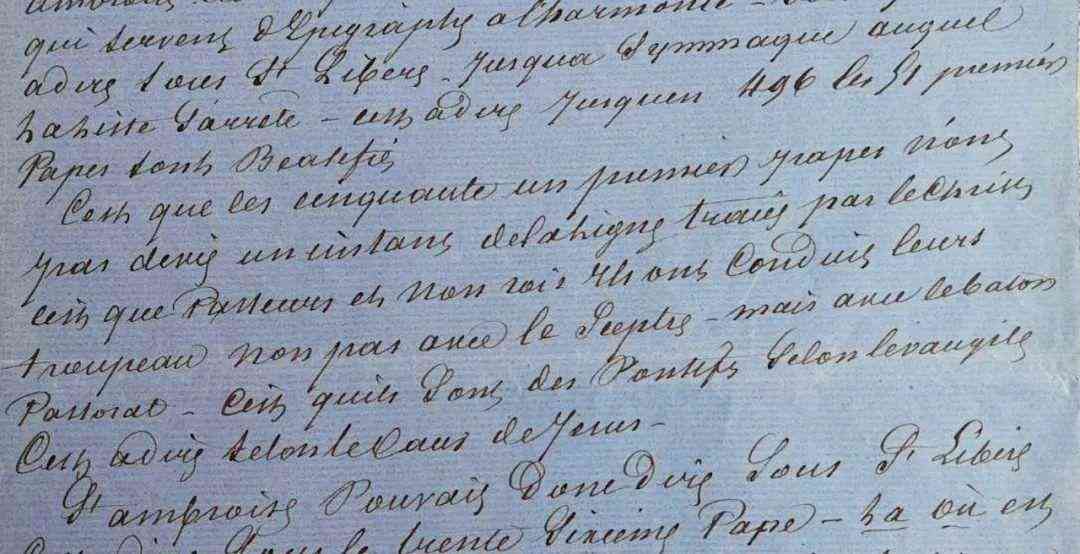 qui servent d'Epigraphe a lharmonie -
adire sous St Libere - Jusqua Symmaque auquel
la liste Sarrete - cest adire Jusquen 496 les 51 premiers
Papes sont Beatifiés
Cest que les cinquante un premiers papes n'ont
pas devié un instant de la ligne tracée par le Christ
cest que Pasteurs et non rois Ils ont Conduit leurs
troupeau non pas avec le Sceptre - mais avec le baton
Pastoral - Cest quils sont des Pontifes Selon lévangile
Cest adire selon le Cœur de Jesus -
St ambroise Pouvait Donc Dire Sous St Libere
le trente Sixieme Pape - La où est